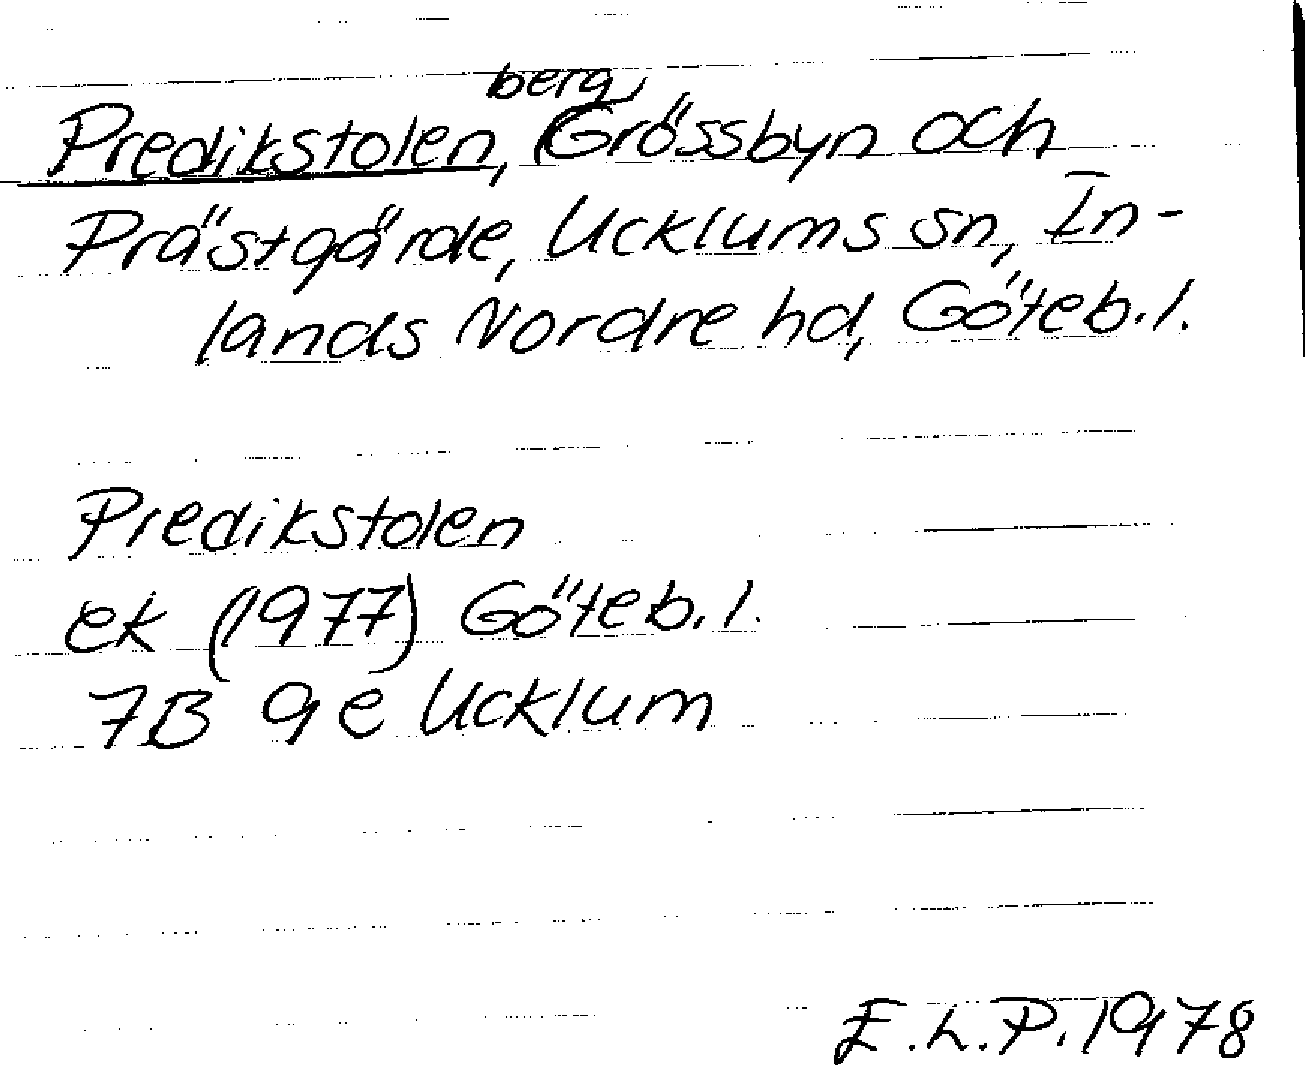 Predikstolen, berg, Grössbyn och
Prästgärde, Ucklums sn, In-
lands Nordre hd, Göteb.l.
Predikstolen
ek (1977) Göteb.l.
7B 9e Ucklum
E.L.P. 1978